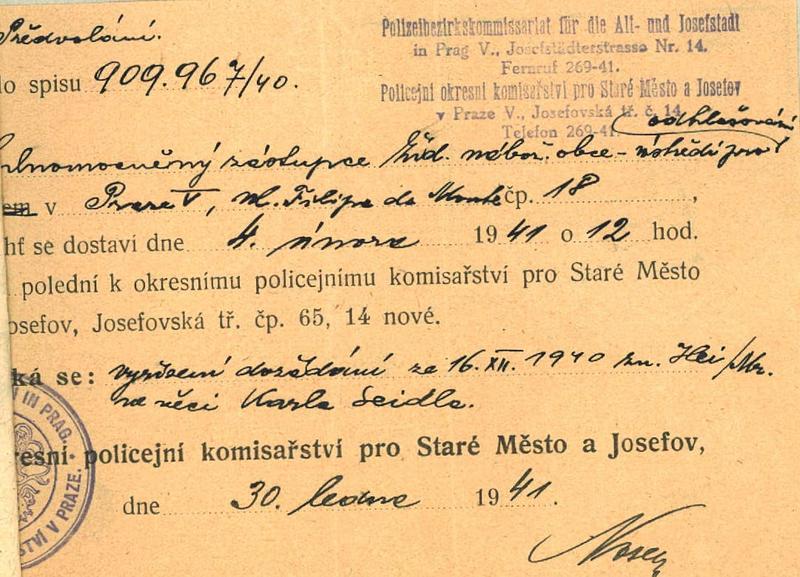 Předvolání.
Polizeibezirkskommissariat für die Alt- und Josefstadt
in Prag V., Josefstädterstrasse Nr. 14.
Fernruf 269-41.
Policejní okresní komisařství pro Staré Město a Josefov
v Praze V., Josefovská tř. č. 14
Telefon 269-41.
lo spisu 909.967/40.
odhlašování
lnomocněný zástupce žid. nábož. obce - ústředí pro
em v Praze V, ul. Filipa de Monte čp. 18,
hť se dostaví dne 4. února 1941 o 12 hod.
polední k okresnímu policejnímu komisařství pro Staré Město
osefov, Josefovská tř. čp. 65, 14 nové.
ká se: vyřízení dožádání ze 16. XII. 1940 zn. Hei/Mr.
ve věci Karla Seidla.
resní policejní komisařství pro Staré Město a Josefov,
dne 30. ledna 1941.
IN PRAG.
STVÍ V PRAZE.